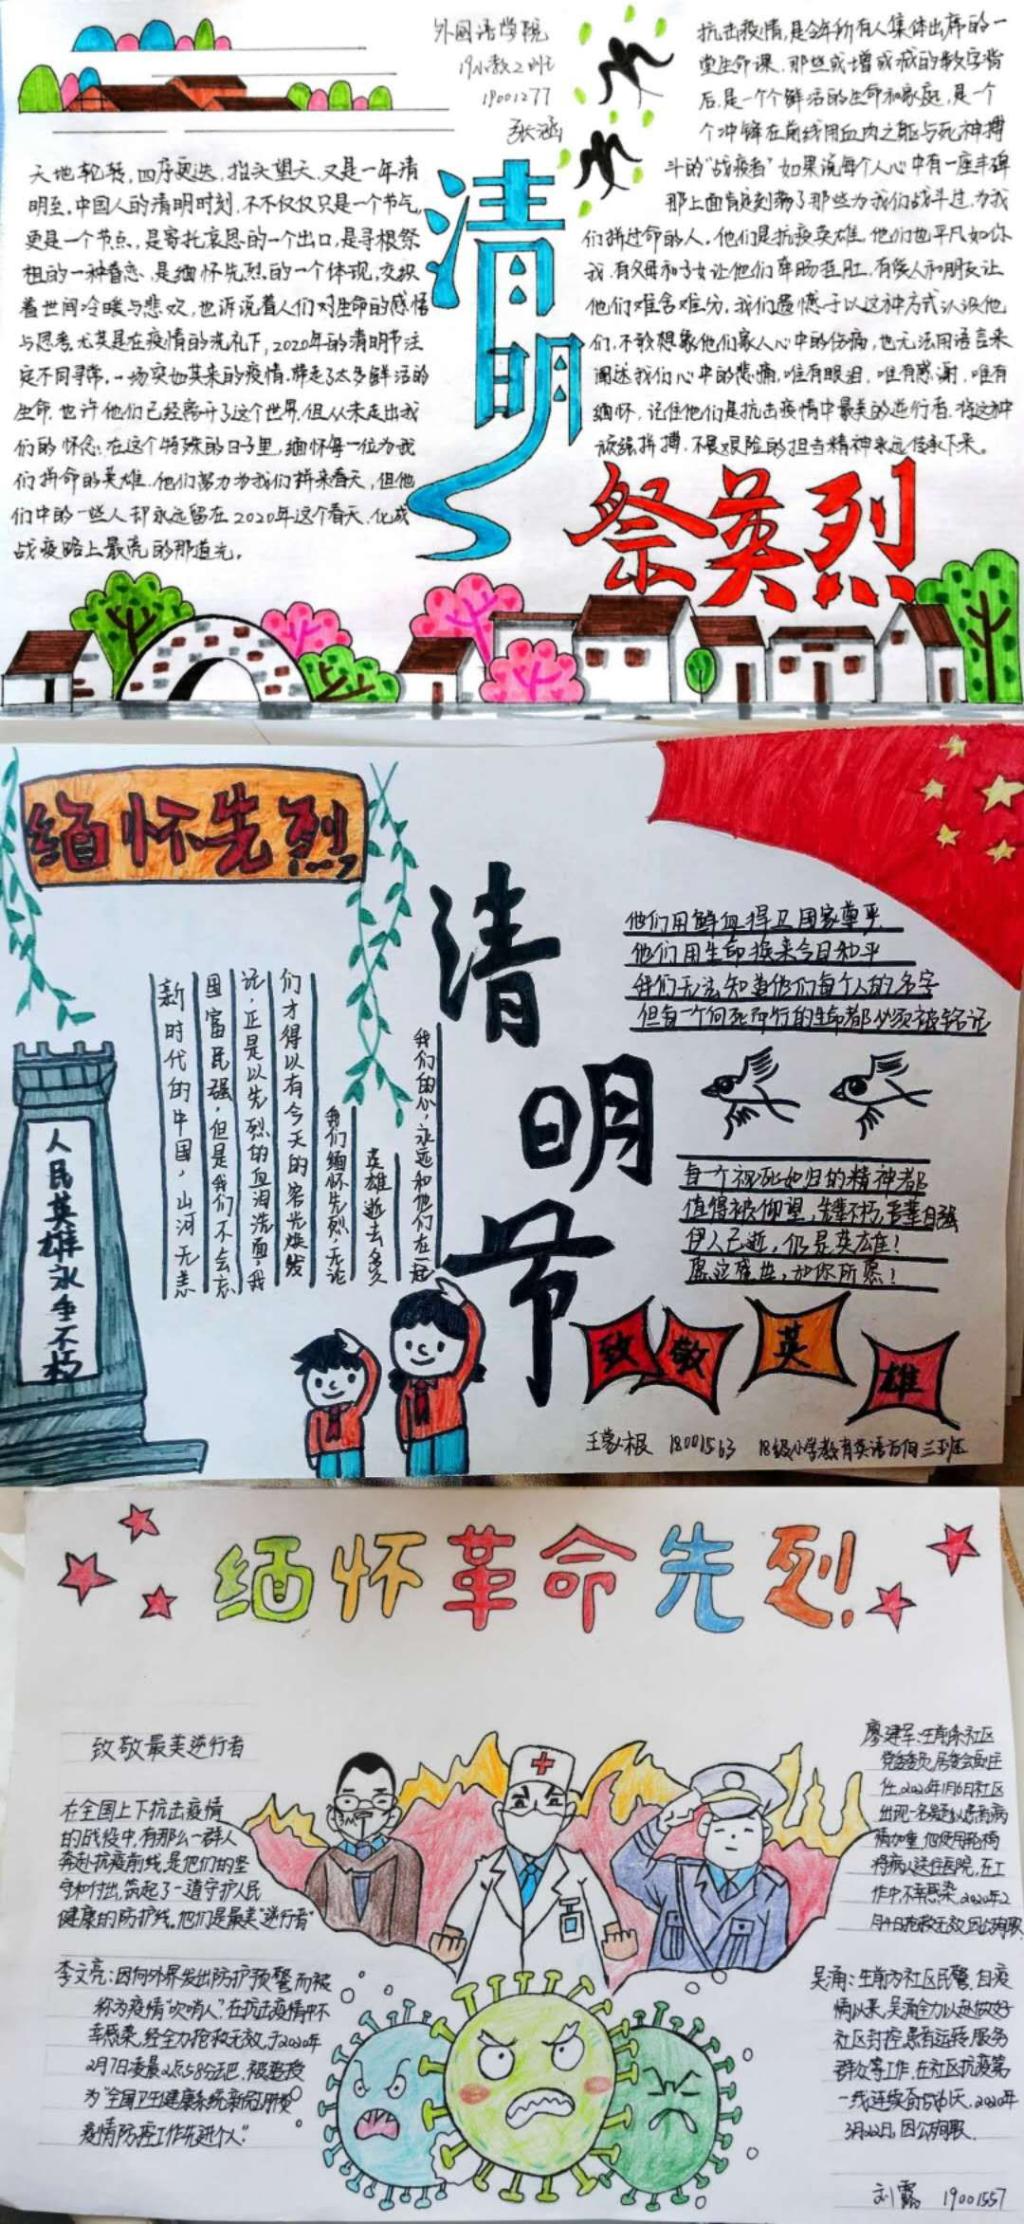 外国语学院
19小教2班
19001277
张涵
天地轮转,四序更迭,抬头望天,又是一年清
明至。中国人的清明时刻,不仅仅只是一个节气,
更是一个节点,是寄托哀思的一个出口,是寻根祭
祖的一种眷恋,是缅怀先烈的一个体现,交织
着世间冷暖与悲欢,也诉说着人们对生命的感悟
与思考。尤其是在疫情的洗礼下,2020年的清明节注
定不同寻常,一场突如其来的疫情,带走了太多鲜活的
生命,也许他们已经离开了这个世界,但从未走出我
们的怀念。在这个特殊的日子里,缅怀每一位为我
们拼命的英雄。他们努力为我们拼来春天,但他
们中的一些人却永远留在2020年这个春天,化成
战疫路上最亮的那道光。
清明
抗击疫情,是今年所有人集体出席的一
堂生命课,那些或增或减的数字背
后,是一个个鲜活的生命和家庭,是一个
个冲锋在前线用血肉之躯与死神搏
斗的“战疫者”如果说每个人心中有一座丰碑
那上面有镌刻着了那些为我们战斗过,为我
们拼过命的人。他们是抗疫英雄,他们也平凡如你
我,有父母和子女让他们牵肠挂肚,有爱人和朋友让
他们难舍难分。我们遗憾于以这种方式认识他
们,不敢想象他们家人心中的伤痛,也无法用语言来
阐述我们心中的悲痛,唯有眼泪,唯有感谢,唯有
缅怀,记住他们是抗击疫情中最美的逆行者,将这种
顽强拼搏,不畏艰险的担当精神永远传承下来。
祭英烈
缅怀先烈
清明节
他们用鲜血捍卫国家尊严
他们用生命换来今日和平
我们无法知道他们每个人的名字
但每一个向死而行的生命都必须被铭记
人民英雄永垂不朽
我们的心,永远和他们在一起
英雄逝去多久
我们缅怀先烈,无论
们才得以有今天的容光焕发
记,正是以先烈的血泪洗面,我
国富民强,但是我们不会忘
新时代的中国,山河无恙
每一个视死如归的精神都
值得被仰望,先辈不朽,吾辈自强
伊人已逝,仍是英雄!
愿这盛世,如你所愿!
致敬英雄
18001563 18级小学教育英语方向三班
缅怀革命先烈
致敬最美逆行者
在全国上下抗击疫情
的战役中,有那么一群人
奔赴抗疫前线,是他们的坚
守和付出,筑起了一道守护人民
健康的防护线,他们是最美“逆行者”
李文亮:因向外界发出防护预警而被
称为疫情“吹哨人”,在抗击疫情中不
幸感染,经全力抢救无效,于2020年
2月7日凌晨2点58分去世,被授
为“全国卫生健康系统新冠肺炎
疫情防控工作先进个人”
廖建军:生前系社区
党委委员,居委会副主
任。2020年1月6日社区
出现一名疑似患者病
情加重,他使用轮椅
将病人送往医院,在工
作中,不幸感染,2020年2
月4日抢救无效,因公殉职
吴涌:生前为社区民警,自疫
情以来,吴涌全力以赴做好
社区封控,患者运转,服务
群众等工作,在社区抗疫第
一线连续奋战61天,2020年
3月22日,因公殉职。
刘露 19001557